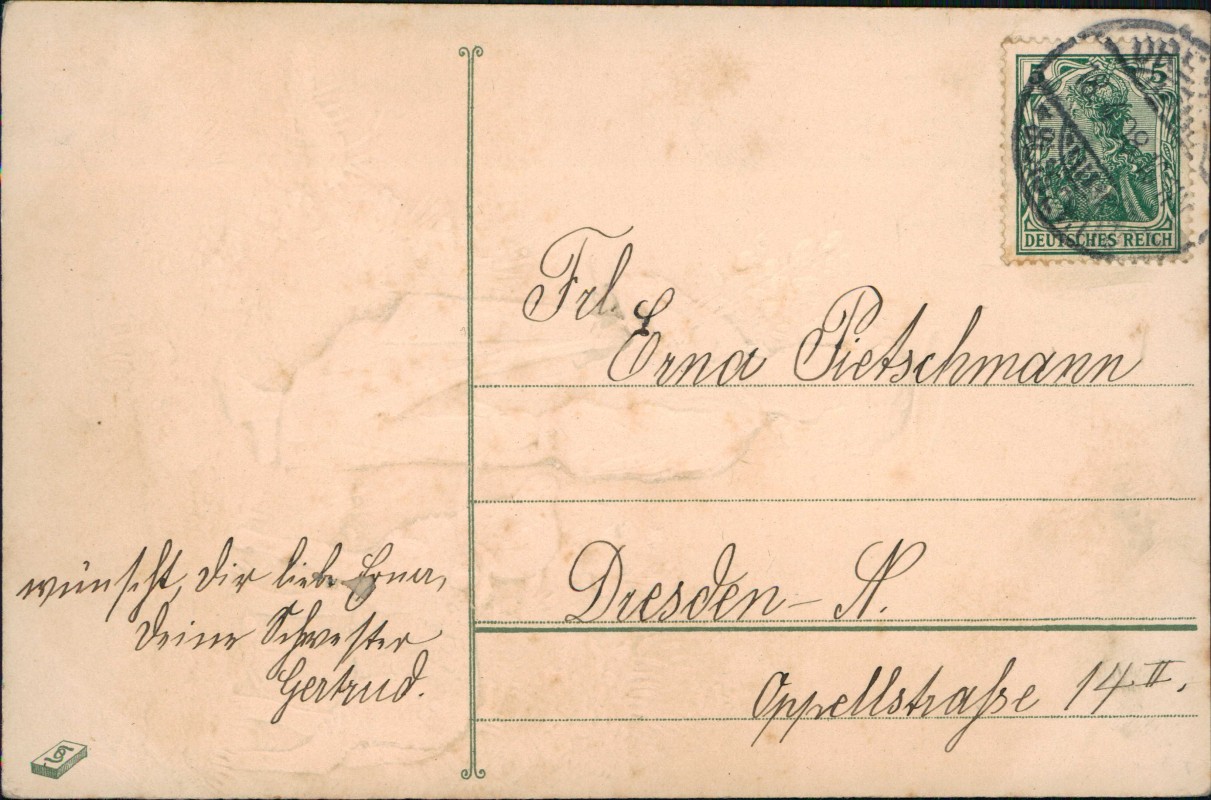 5 5
DEUTSCHES REICH
Frl.
Erna Pietschmann
Dresden-N.
Oppellstraße 14 II.
wünscht, Dir liebe Erna,
Deine Schwester
Gertrud.